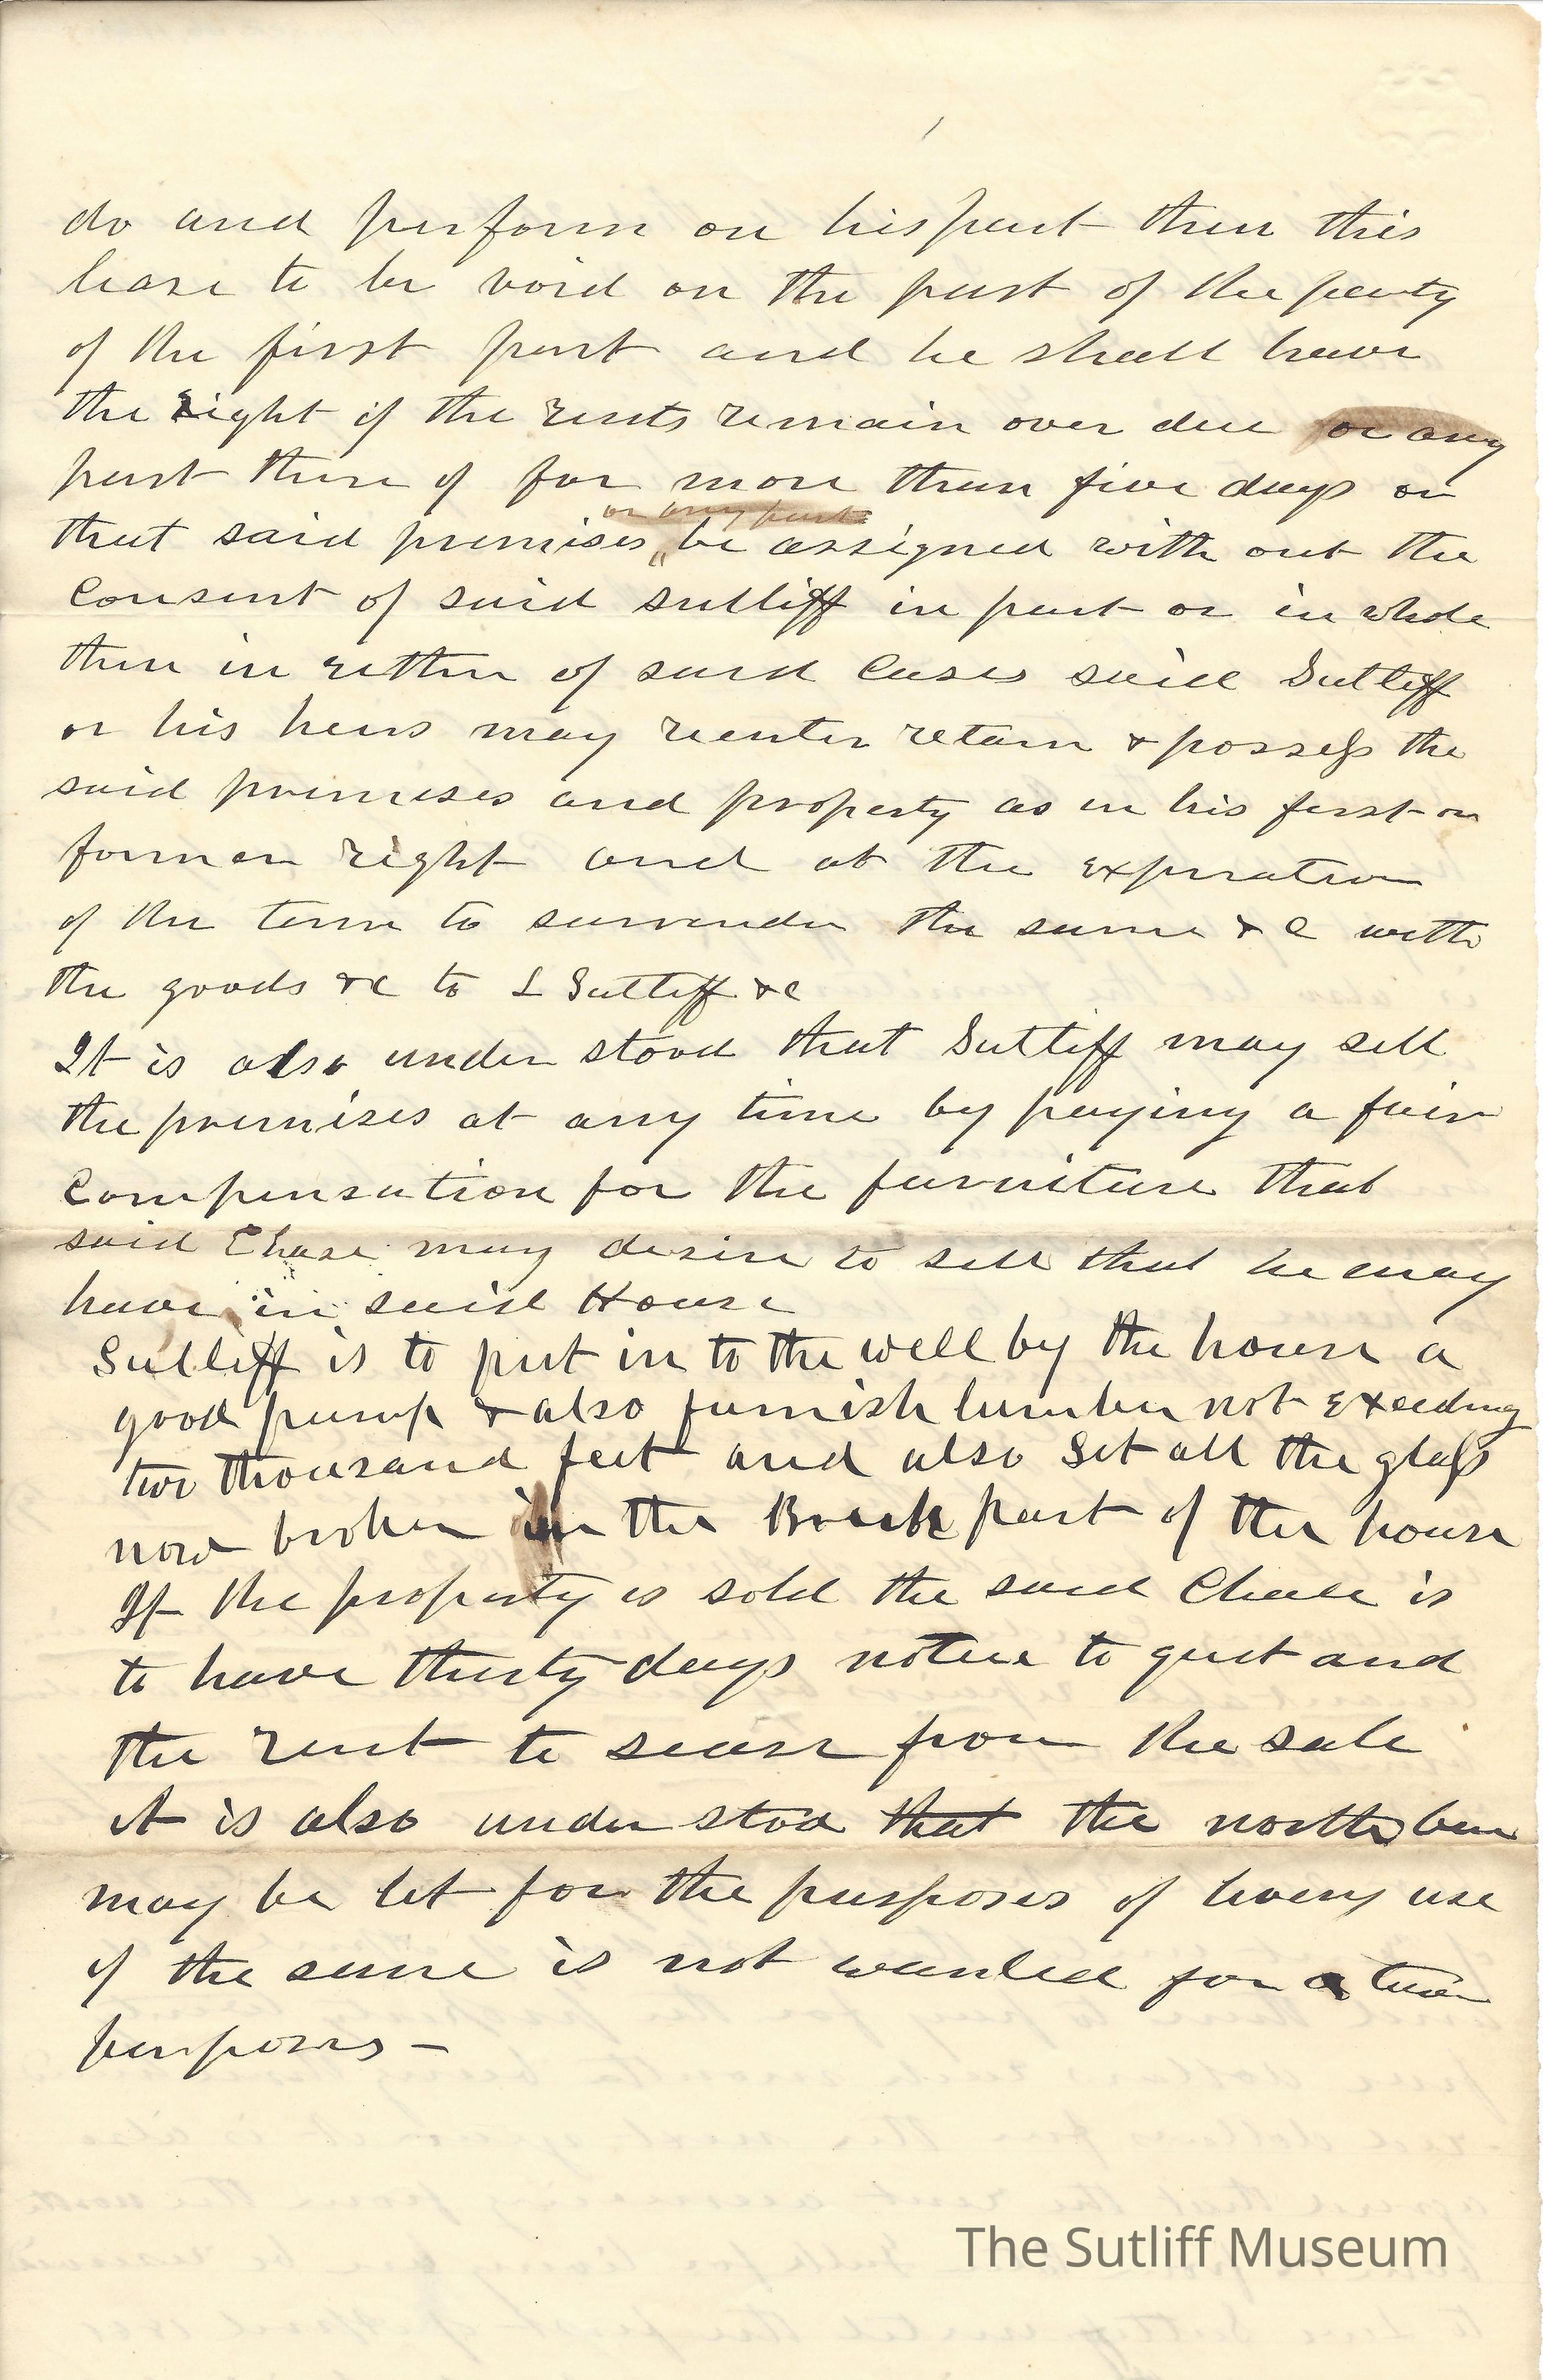 do and perform on his part then this
lease to be void on the part of the party
of the first part and he shall have
the right if the rents remain over due or any
part there of for more than five days or
or any part
that said premises be assigned with out the
consent of said Sutliff in part or in whole
then in either of said cases said Sutliff
or his heirs may reenter retain & possess the
said premises and property as in his first or
former right and at the expiration
of the term to surrender the same & c with
the goods &c to L Sutliff &c
It is also under stood that Sutliff may sell
the premises at any time by paying a fair
compensation for the furniture that
said Chase may desire to sell that he may
have in said House
Sutliff is to put in to the well by the house a
good pump & also furnish lumber not exeeding
two thousand feet and also Set all the glass
now broken in the part of the house
If the property is sold the said is
to have thirty days notice to quit and
the rent to from the sale
it is also under stod that the north
may be let for the purposes of use
if the same is not wanted for
purposes -
The Sutliff Museum